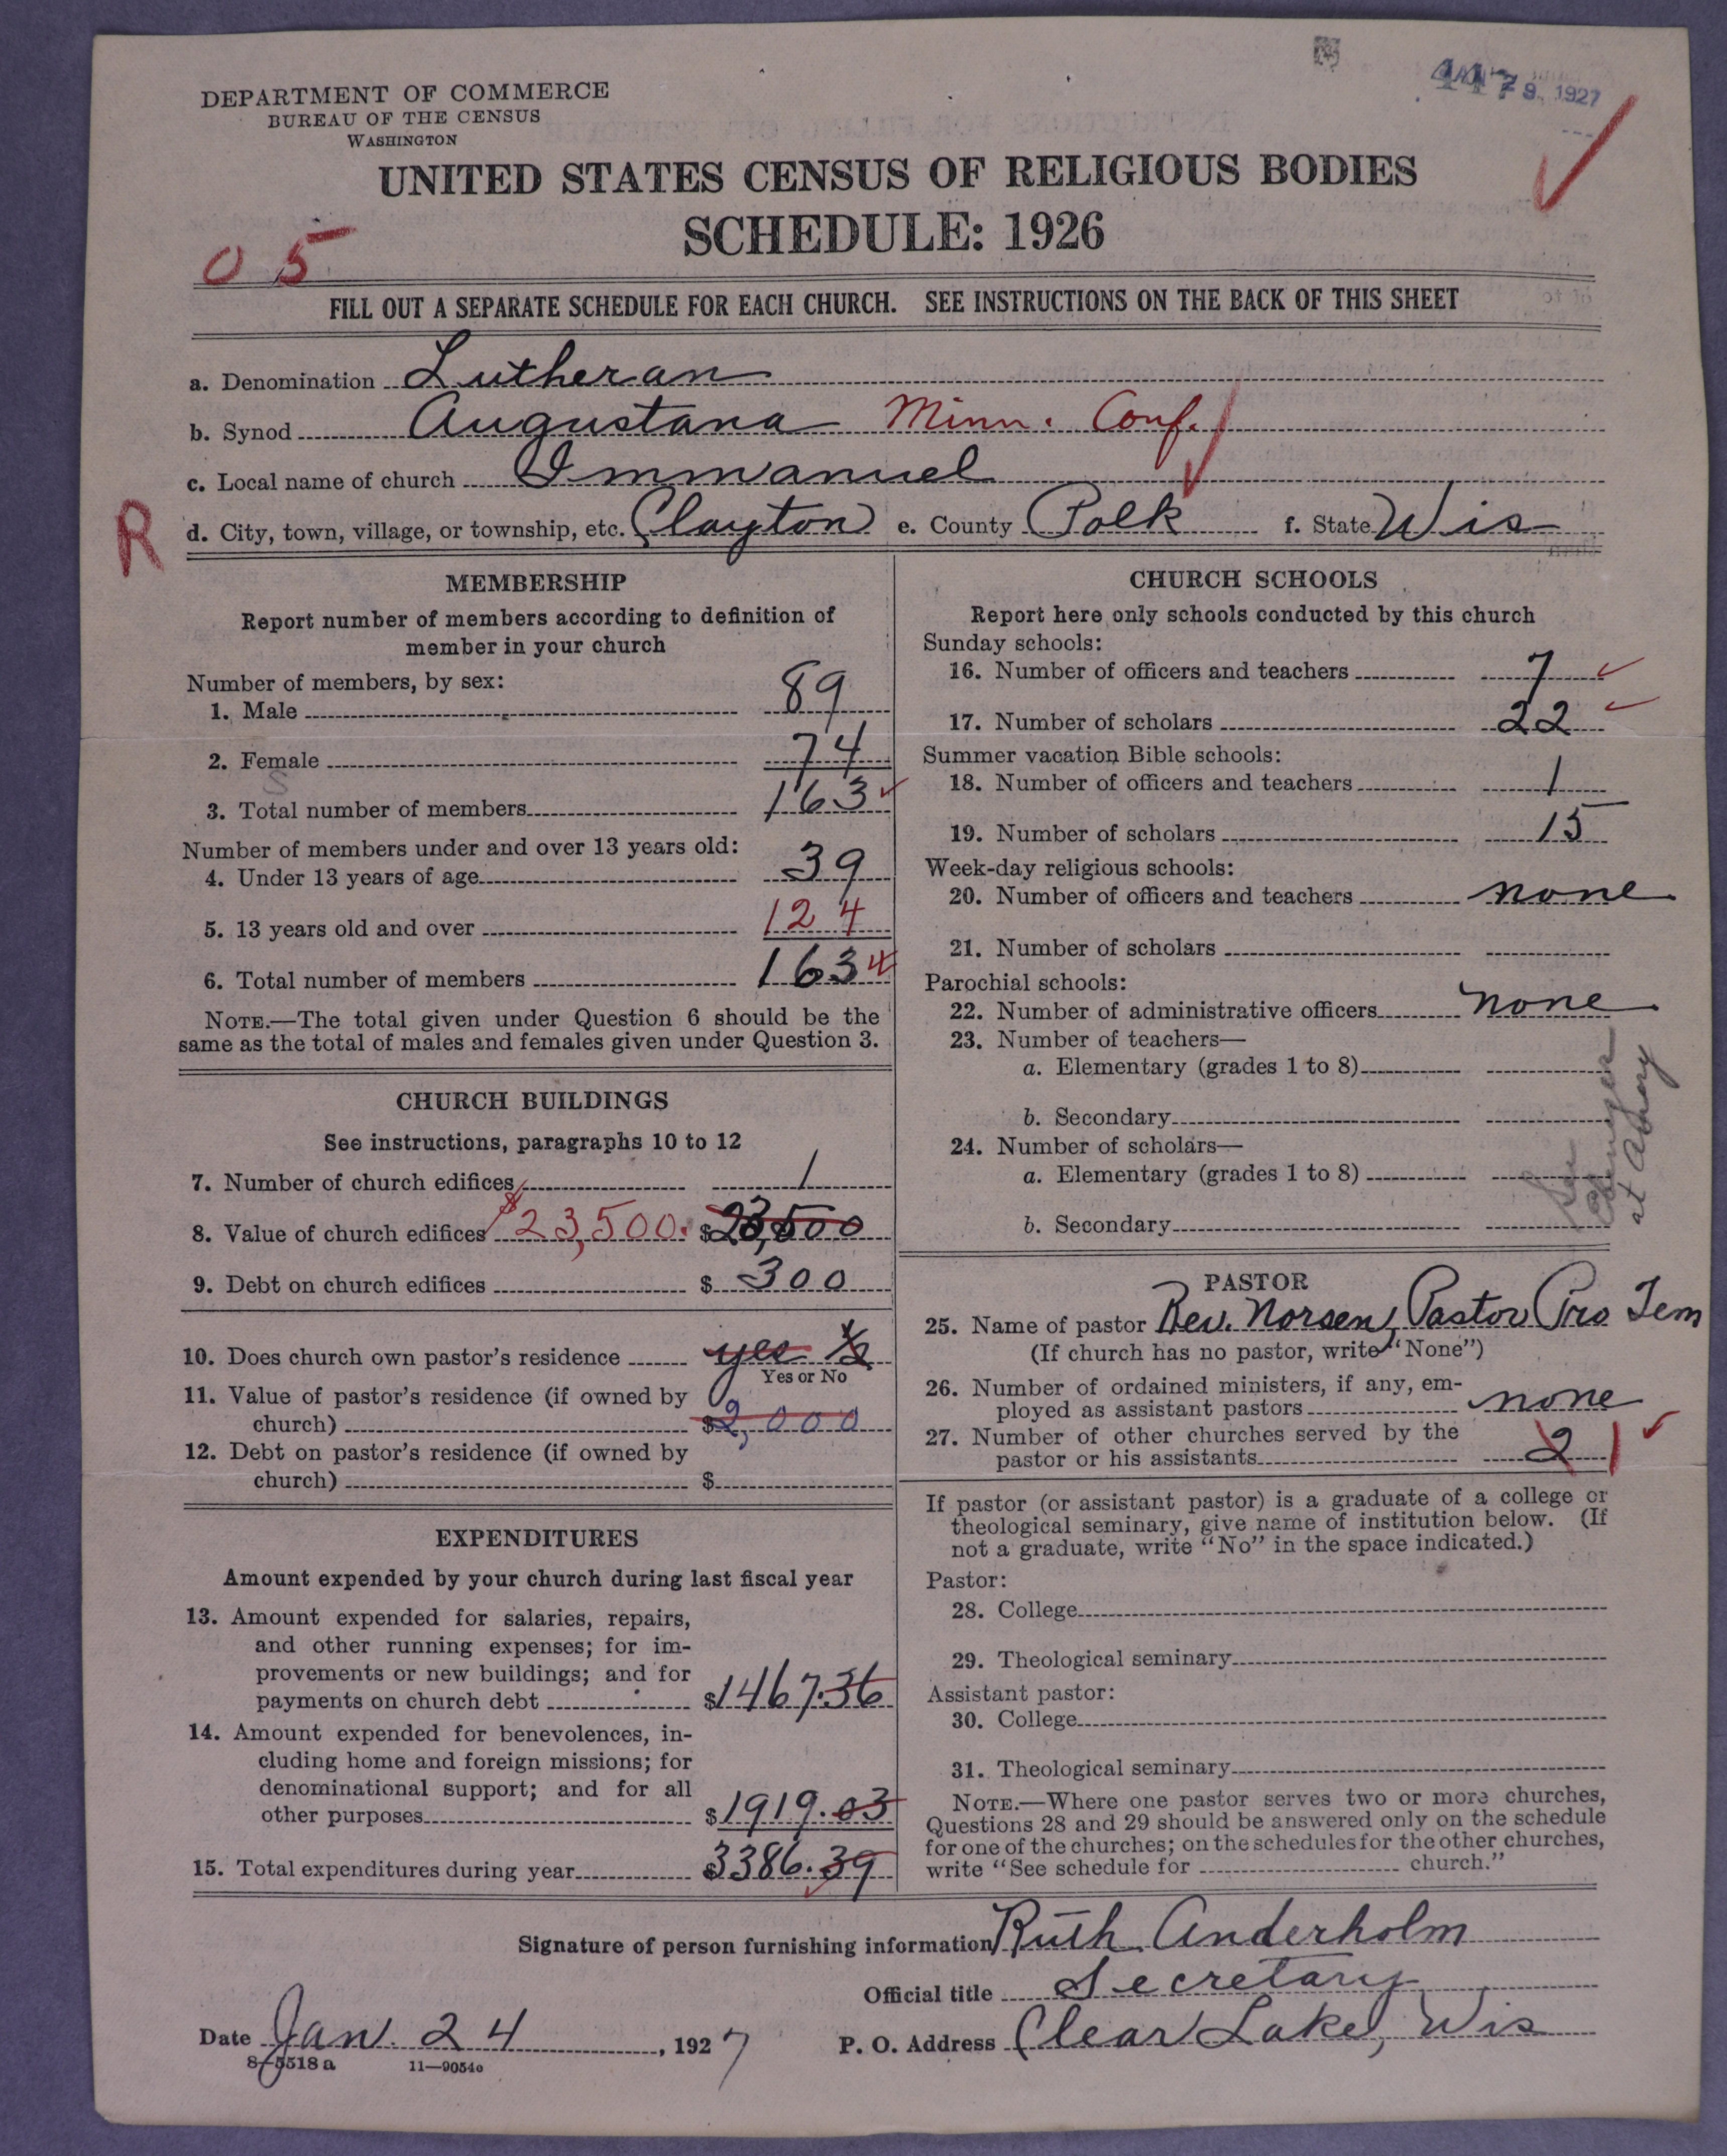 DEPARTMENT OF COMMERCE
BUREAU OF THE CENSUS
WASHINGTON
9, 1927
UNITED STATES CENSUS OF RELIGIOUS BODIES
SCHEDULE: 1926
05
FILL OUT A SEPARATE SCHEDULE FOR EACH CHURCH. SEE INSTRUCTIONS ON THE BACK OF THIS SHEET
a. Denomination Lutheran
b. Synod Augustana Minn. Conf.
c. Local name of church Immanuel
R
d. City, town, village, or township, etc. Clayton e. County Polk f. State Wis
MEMBERSHIP
Report number of members according to definition of
member in your church
Number of members, by sex:
1. Male 89
2. Female 74
3. Total number of members 163
Number of members under and over 13 years old:
4. Under 13 years of age 39
5. 13 years old and over 124
6. Total number of members 163
NOTE.—The total given under Question 6 should be the
same as the total of males and females given under Question 3.
CHURCH BUILDINGS
See instructions, paragraphs 10 to 12
7. Number of church edifices 1
8. Value of church edifices $23,500. $23,500
9. Debt on church edifices $ 300
10. Does church own pastor's residence yes ½
Yes or No
11. Value of pastor's residence (if owned by
church) $2,000
12. Debt on pastor's residence (if owned by
church) $
EXPENDITURES
Amount expended by your church during last fiscal year
13. Amount expended for salaries, repairs,
and other running expenses; for im-
provements or new buildings; and for
payments on church debt $1467.36
14. Amount expended for benevolences, in-
cluding home and foreign missions; for
denominational support; and for all
other purposes $1919.03
15. Total expenditures during year $3386.39
CHURCH SCHOOLS
Report here only schools conducted by this church
Sunday schools:
16. Number of officers and teachers 7
17. Number of scholars 22
Summer vacation Bible schools:
18. Number of officers and teachers 1
19. Number of scholars 15
Week-day religious schools:
20. Number of officers and teachers none
21. Number of scholars
Parochial schools:
22. Number of administrative officers none
23. Number of teachers—
a. Elementary (grades 1 to 8)
b. Secondary
24. Number of scholars—
a. Elementary (grades 1 to 8)
b. Secondary
See
at
PASTOR
25. Name of pastor Rev. Norsen, Pastor Pro Tem
(If church has no pastor, write "None")
26. Number of ordained ministers, if any, em-
ployed as assistant pastors none
27. Number of other churches served by the
pastor or his assistants 2 1
If pastor (or assistant pastor) is a graduate of a college or
theological seminary, give name of institution below. (If
not a graduate, write "No" in the space indicated.)
Pastor:
28. College
29. Theological seminary
Assistant pastor:
30. College
31. Theological seminary
NOTE.—Where one pastor serves two or more churches,
Questions 28 and 29 should be answered only on the schedule
for one of the churches; on the schedules for the other churches,
write "See schedule for church."
Signature of person furnishing information Ruth Anderholm
Official title Secretary
Date Jan. 24, 1927 P. O. Address Clear Lake, Wis
8-5518a 11—9054o